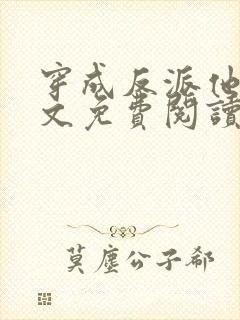 穿成反派他
文免费閱讀
莫塵公子郗